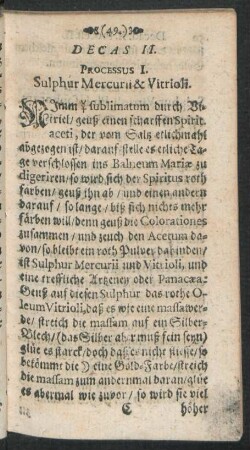 (49.)
DECAS II.
PROCESSUS I.
Sulphur Mercurii & Vitrioli.
NImm ☿ sublimatum durch Vi-
triel/ geuß einen scharffen Spirit.
aceti, der vom Saltz etlichmahl
abgezogen ist/ darauf/ stelle es etliche Ta-
ge verschlossen ins Balneum Mariæ zu
digeriren/ so wird sich der Spiritus roth
farben/ geuß ihn ab/ und einen andern
darauf/ so lange/ biß sich nichts mehr
färben will/ denn geuß die Colorationes
zusammen/ und zeuch den Acetum da-
von/ so bleibt ein roth Pulver dahinden/
ist Sulphur Mercurii und Vitrioli, und
eine treffliche Artzeney oder Panacæa:
Geuß auf diesen Sulphur das rothe O-
leum Vitrioli, daß es wie eine massa wer-
de/ streich die massam auf ein Silber-
Blech/ (das Silber aber muß fein seyn)
glüe es starck/ doch daß es nicht fliesse/ so
bekömmt die ☽ eine Gold-Farbe/ streich
die massam zum andernmal daran/ glüe
es abermal wie zuvor/ so wird sie viel
C höher